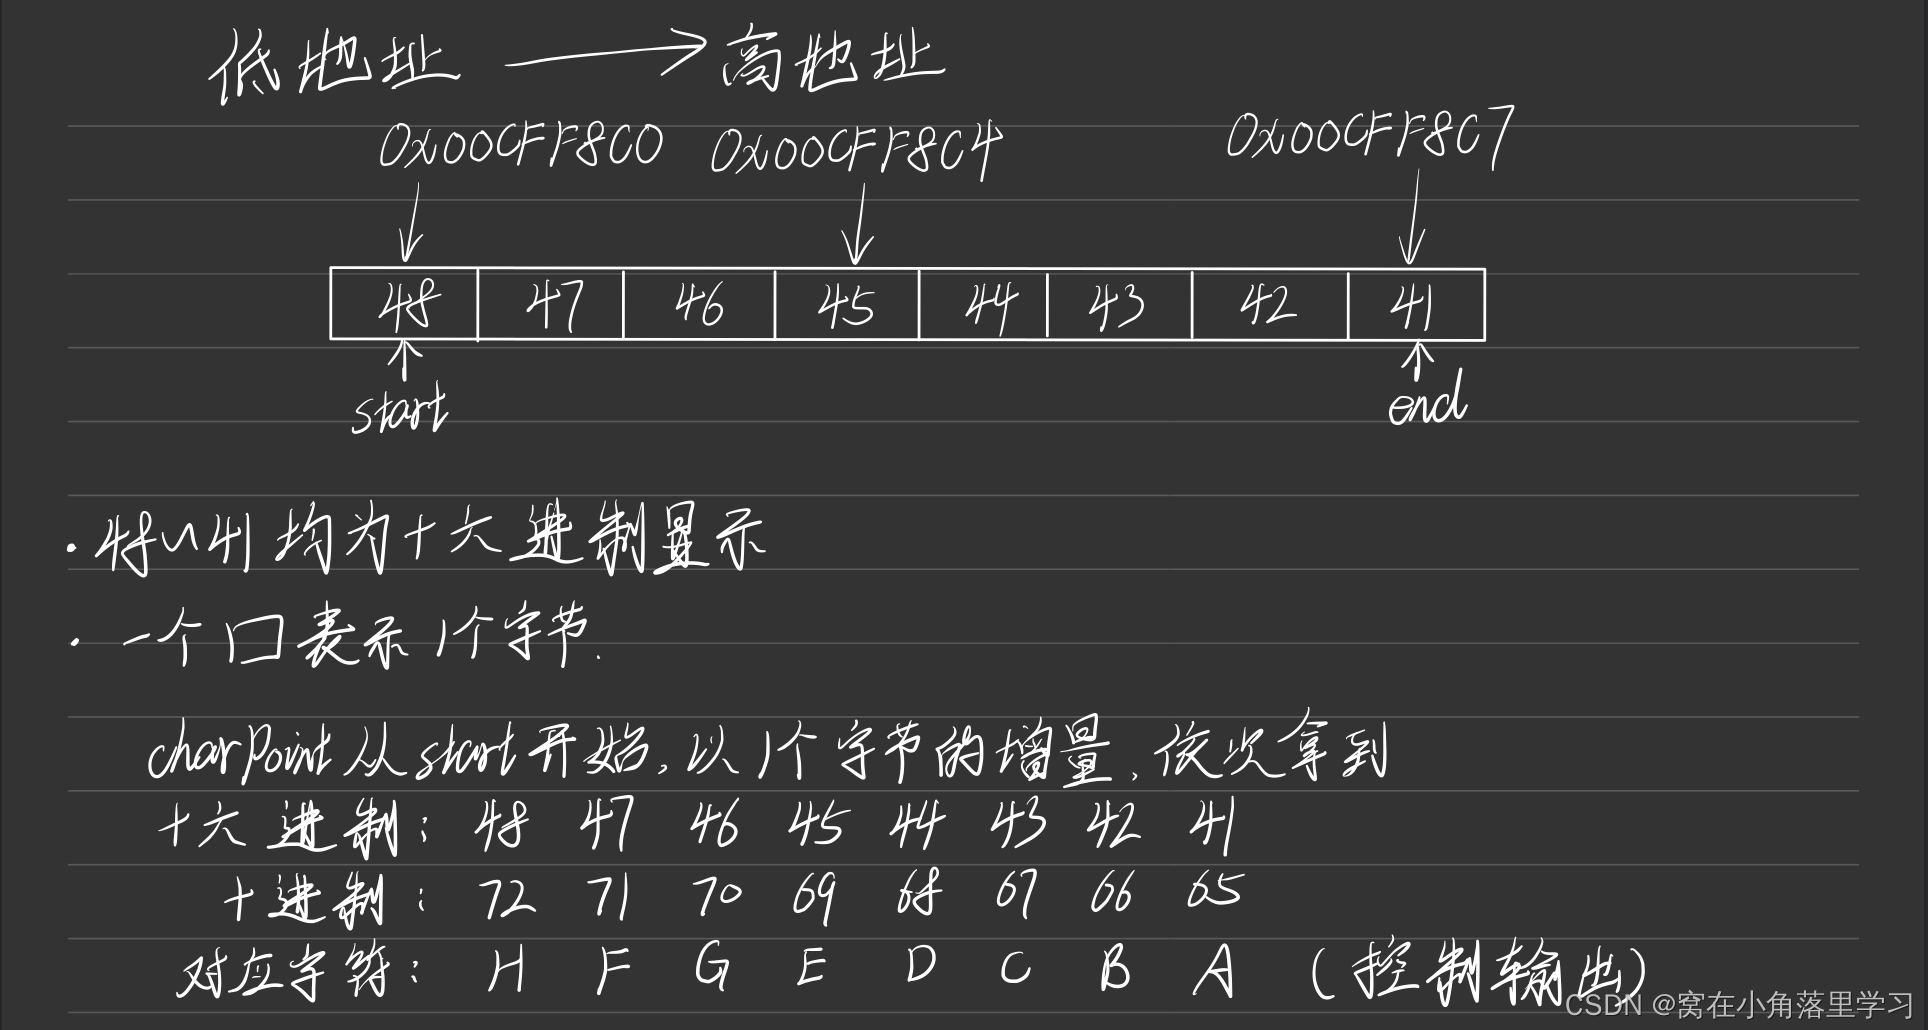 低地址 → 高地址
0x00CFF8C0 0x00CFF8C4 0x00CFF8C7
48 47 46 45 44 43 42 41
start end
·48~41均为十六进制显示
·一个口表示1个字节.
charPoint从start开始,以1个字节的增量,依次拿到
十六进制: 48 47 46 45 44 43 42 41
十进制: 72 71 70 69 68 67 66 65
对应字符: H F G E D C B A (控制输出)
CSDN @窝在小角落里学习